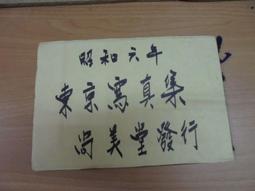 昭和六年
東京寫真集
尚美堂發行